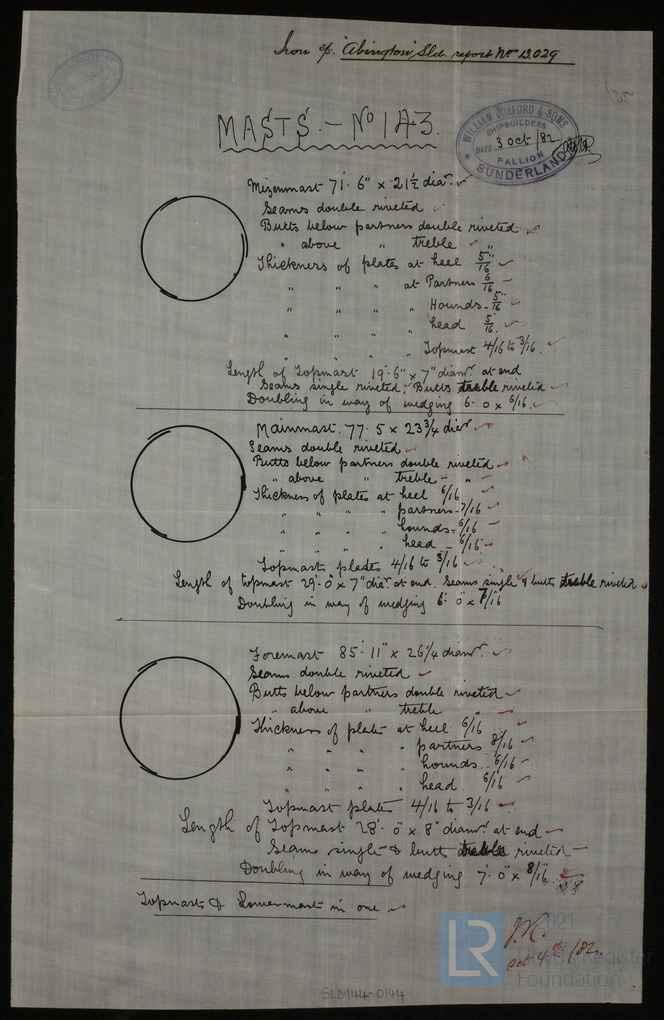 Iron s/s "Abington" Sld. report No 13.029
MASTS. - No 143.
WILLIAM DOXFORD & SONS
SHIPBUILDERS
DATE 3 Oct / 82
PALLION
SUNDERLAND
Mizenmast 71'. 6" x 21½ diar.
Seams double riveted
Butts below partners double riveted
" above " treble "
Thickness of plates at heel 5/16"
" " " at Partners 6/16
" " " " Hounds - 5/16"
" " " " head 5/16.
" " " " Topmast 4/16 to 3/16.
Length of Topmast 19'. 6" x 7" diamr. at end
Seams single riveted, Butts treble riveted
Doubling in way of wedging 6. 0 x 6/16.
Mainmast. 77. 5 x 23¾ diar
Seams double riveted
Butts below partners double riveted
" above " treble - "
Thickness of plates at heel 6/16
" " " " partners - 7/16
" " " " hounds - 6/16
" " " " head - 6/16
Topmast plates 4/16 to 3/16
Length of topmast 29'. 0" x 7" diar. at end. Seams single & butts treble riveted
Doubling in way of wedging 6'. 0" x 7/16
Foremast 85'. 11" x 26¼ diamr.
Seams double riveted
Butts below partners double riveted
" above " treble "
Thickness of plates at heel 6/16
" " " " partners 8/16
" " " " hounds. 6/16
" " " " head 6/16
Topmast plates 4/16 to 3/16
Length of Topmast 28'. 0" x 8" diamr. at end
Seams single & butts treble riveted
Doubling in way of wedging 7'. 0" x 8/16
Topmasts & Lowermast in one
Oct 4th /82.
LR
2021
Lloyd's Register
Foundation
SLD944-0144